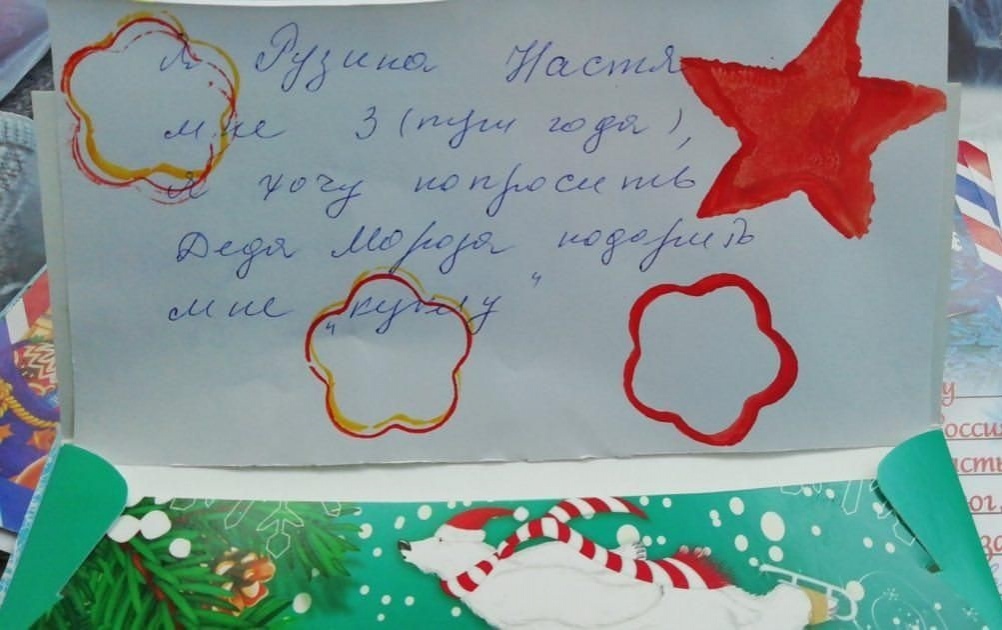 Я Рузина Настя
мне 3 (три года),
Я хочу попросить
Деда Мороза подарить
мне "куклу"
у
Росси